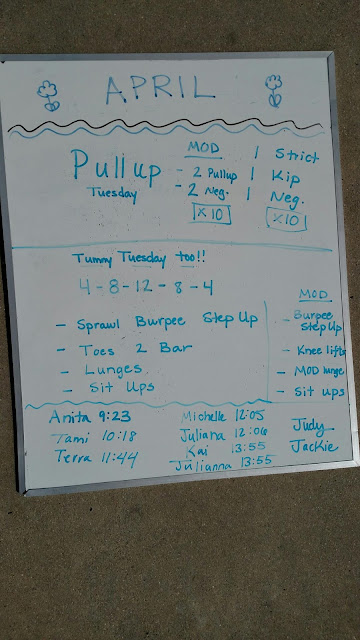 APRIL
Pullup
Tuesday
MOD
- 2 Pullup
- 2 Neg.
X 10
1 Strict
1 Kip
1 Neg.
X 10
Tummy Tuesday too!!
4 - 8 - 12 - 8 - 4
- Sprawl Burpee Step Up
- Toes 2 Bar
- Lunges
- Sit Ups
MOD
- Burpee
Step Up
- Knee lifts
- MOD lunge
- Sit ups
Anita 9:23
Tami 10:18
Terra 11:44
Michelle 12:05
Juliana 12:06
Kai 13:55
Julianna 13:55
Judy
Jackie